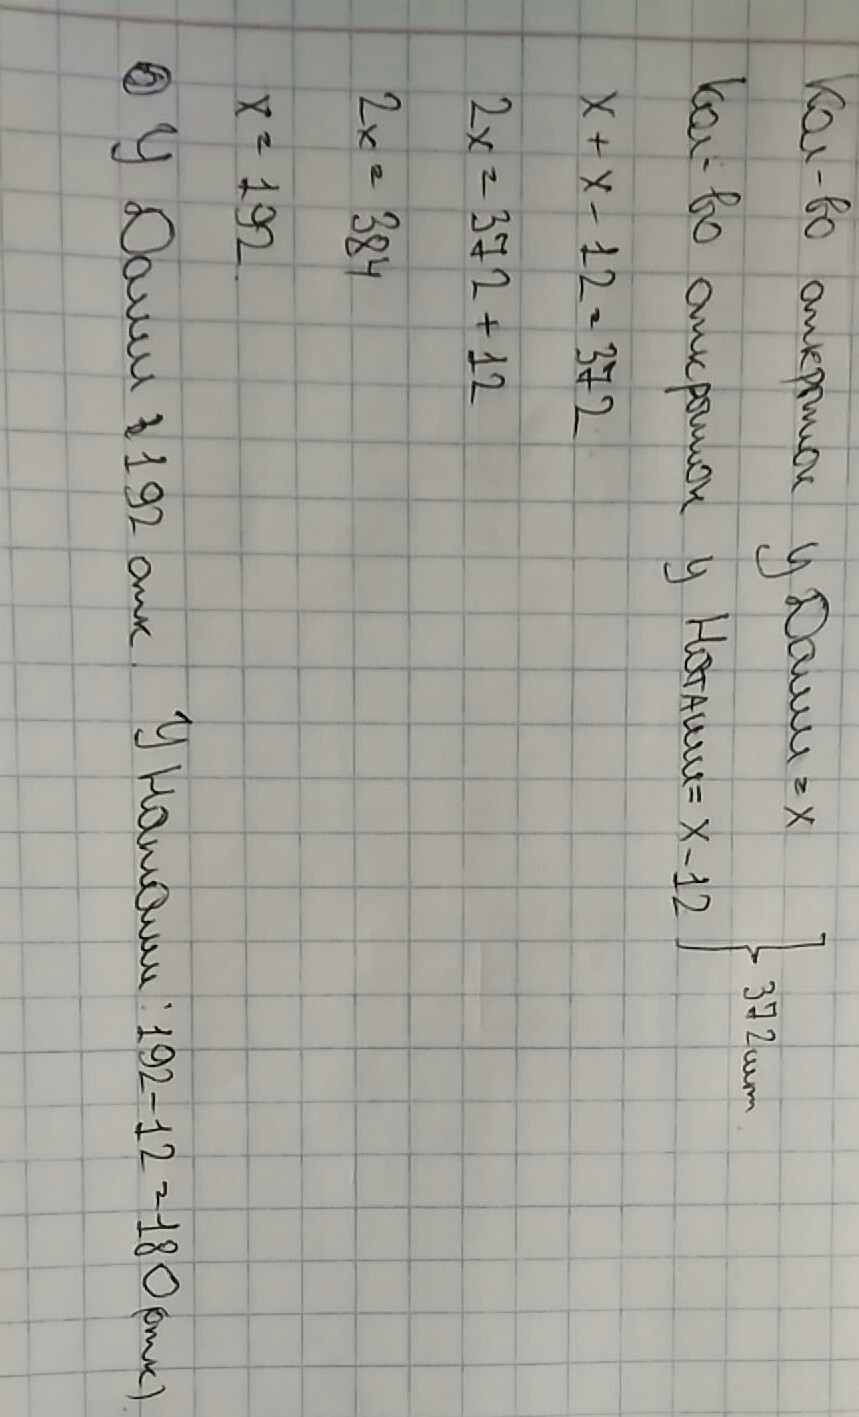 Кол-во открыток у Даши = x
Кол-во открыток у Наташи = x - 12 } 372 шт.
x + x - 12 = 372
2x = 372 + 12
2x = 384
x = 192.
У Даши 192 отк. У Наташи: 192 - 12 = 180 (отк)